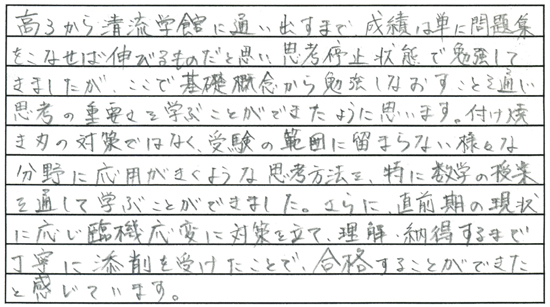 高3から清流学館に通い出すまで、成績は単に問題集
をこなせば伸びるものだと思い、思考停止状態で勉強して
きましたが、ここで基礎概念から勉強しなおすことを通じ
思考の重要さを学ぶことができたように思います。付け焼
き刃の対策ではなく、受験の範囲に留まらない様々な
分野に応用がきくような思考方法を、特に数学の授業
を通して学ぶことができました。さらに、直前期の現状
に応じ臨機応変に対策を立て、理解・納得するまで
丁寧に添削を受けたことで、合格することができた
と感じています。